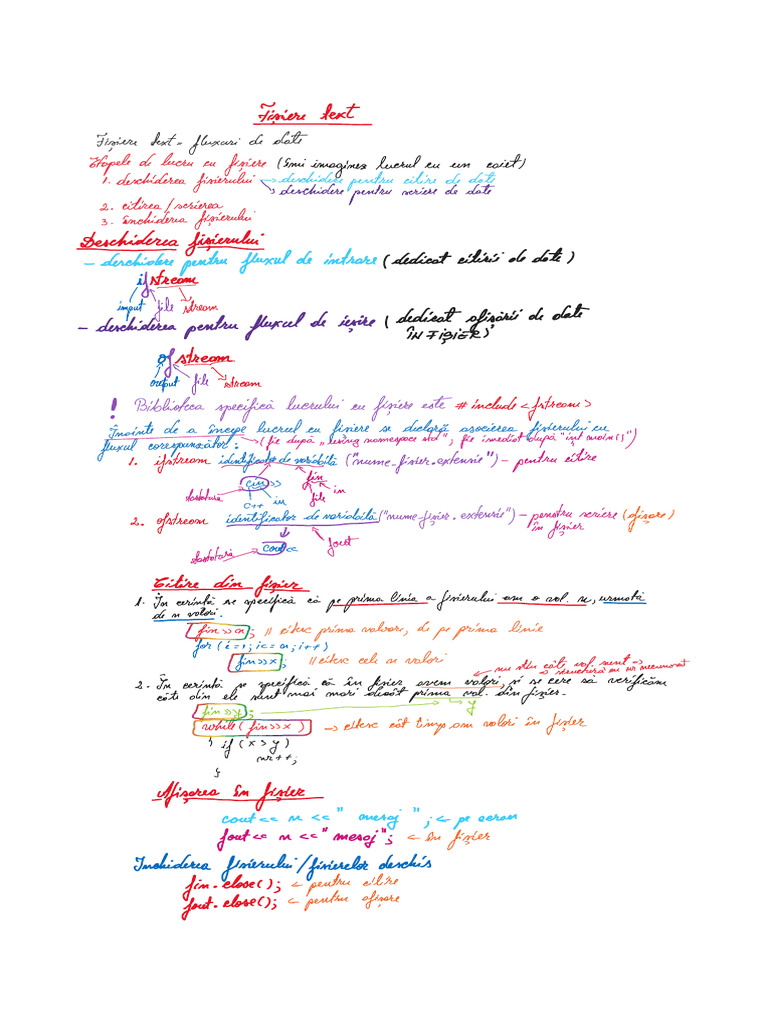 Fișiere text
Fișiere text = fluxuri de date
Etapele de lucru cu fișiere (îmi imaginez lucrul cu un caiet)
1. deschiderea fișierului → deschidere pentru citire de date
→ deschidere pentru scriere de date
2. citirea/scrierea
3. închiderea fișierului
Deschiderea fișierului
- deschidere pentru fluxul de intrare (dedicat citirii de date)
ifstream
input file stream
- deschiderea pentru fluxul de ieșire (dedicat afișării de date
ÎN FIȘIER)
ofstream
output file stream
! Biblioteca specifică lucrului cu fișiere este #include <fstream>
Înainte de a începe lucrul cu fișiere se declară asocierea fișierului cu
fluxul corespunzător: (fie după „using namespace std”, fie imediat după "int main()")
1. ifstream identificator de variabilă ("nume-fișier.extensie") - pentru citire
cin >> fin
tastatură c++ in file in
2. ofstream identificator de variabilă ("nume-fișier.extensie") - pentru scriere (afișare)
în fișier
tastatură cout << fout
Citire din fișier
1. În cerință se specifică că pe prima linia a fișierului am o val. n, urmată
de n valori.
fin>>n; // citesc prima valoare, de pe prima linie
for (i=1; i<=n; i++)
fin>>x; // citesc cele n valori
nu știu câte val. sunt ⇒
2. În cerință se specifică că în fișier avem valori, și se cere să verificăm
câte din ele sunt mai mari decât prima val. din fișier.
fin>>y; → y
while(fin>>x) → citesc cât timp am valori în fișier
{ if (x>y)
nr++;
}
Afișarea în fișier
cout << n << " mesaj "; ← pe ecran
fout << n << " mesaj"; ← în fișier
Închiderea fișierului/fișierelor deschis
fin.close(); ← pentru citire
fout.close(); ← pentru afișare